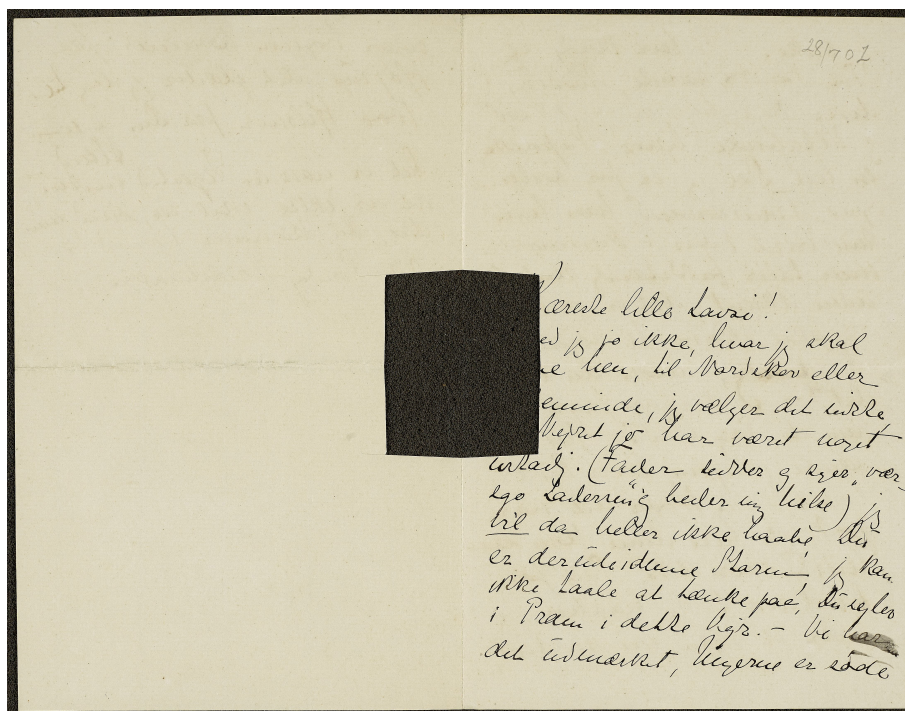 28/7 02
Kæreste lille Lavsi!
ed jeg jo ikke, hvor jeg skal
ne hen, til Nordskov eller
eminde, jeg vælger det sidste
Vejret jo har været noget
ustadj. (Fader sidder og siger, "vær-
sgo Ladersnig" beder mig hilse) jeg
vil da heller ikke haabe Du
er derude i denne Storm, jeg kan
ikke taale at tænke paa, Du sejler
i Pram i dette Vejr. – Vi har
det udmærket, Ungerne er søde